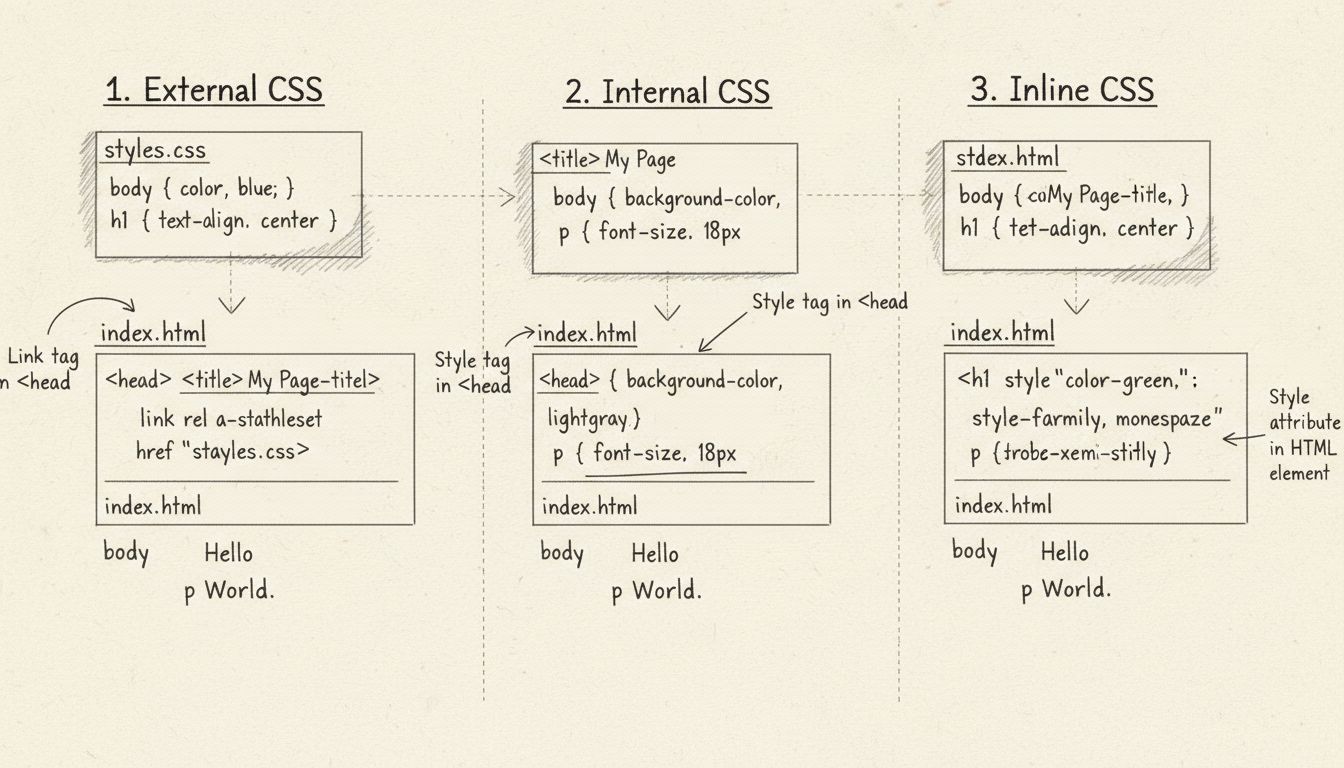 1. External CSS
styles.css
body { color, blue; }
h1 { text-align. center }
Link tag
n <head
index.html
<head> <title> My Page-titel>
link rel a-stathleset
href "stayles.css>
index.html
body Hello
p World.
2. Internal CSS
<title> My Page
body { background-color,
p { font-size. 18px
Style tag in <head
Style tag
in <head
index.html
<head> { background-color,
lightgray }
p { font-size. 18px
index.html
body Hello
p World.
3. Inline CSS
stdex.html
body { coMy Page-title, }
h1 { tet-adign. center }
index.html
<h1 style "color-green,";
style-farmily, monespaze"
p {
}
Style
attribute
in HTML
element
index.html
body Hello
p World.